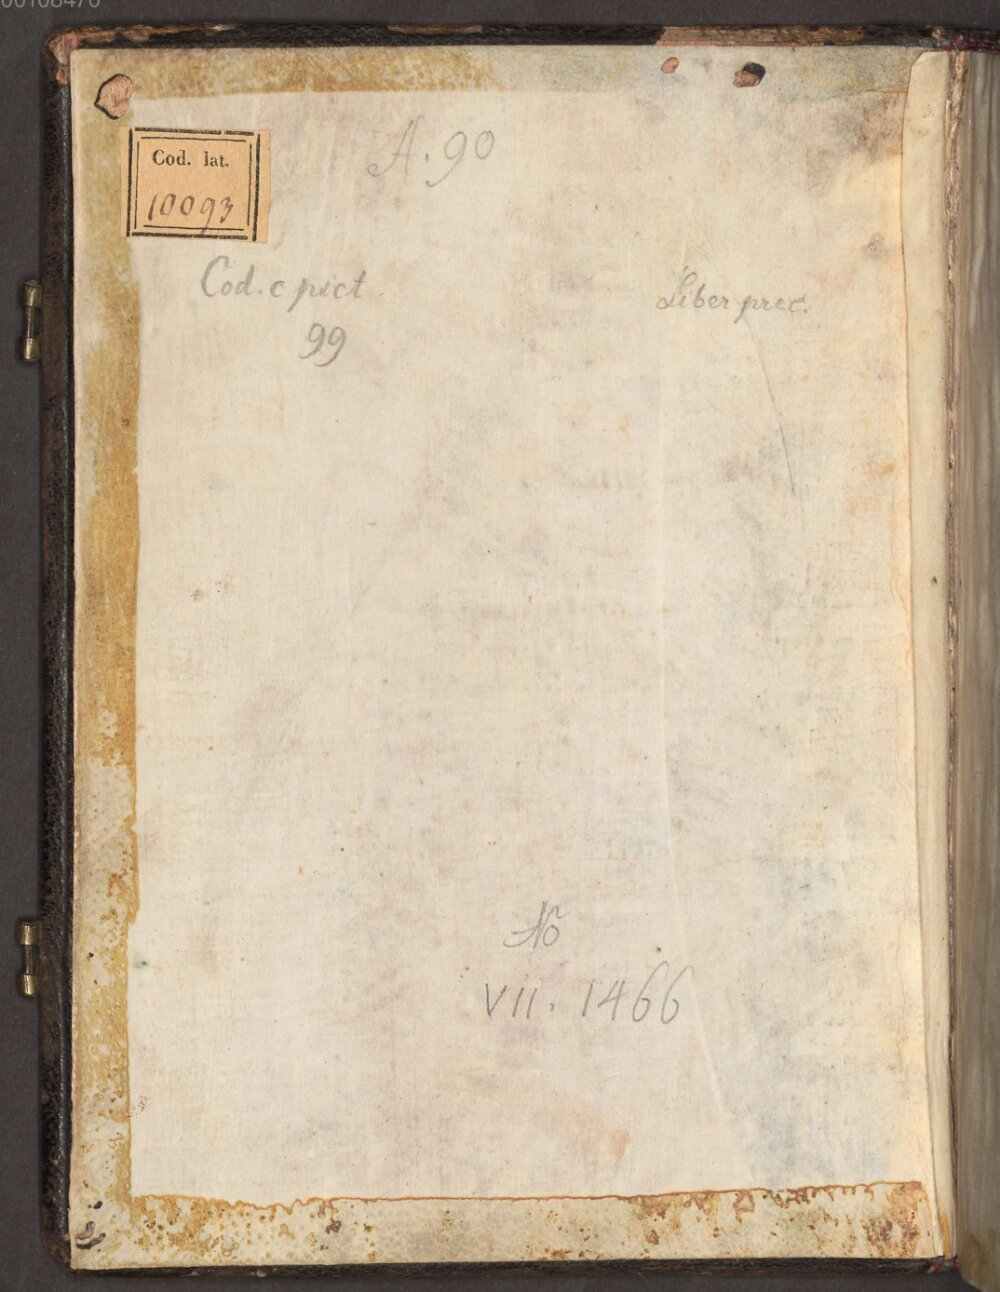 00108470
A. 90
Cod. lat.
10093
Cod. c pict
99
Liber prec.
No
VII. 1466